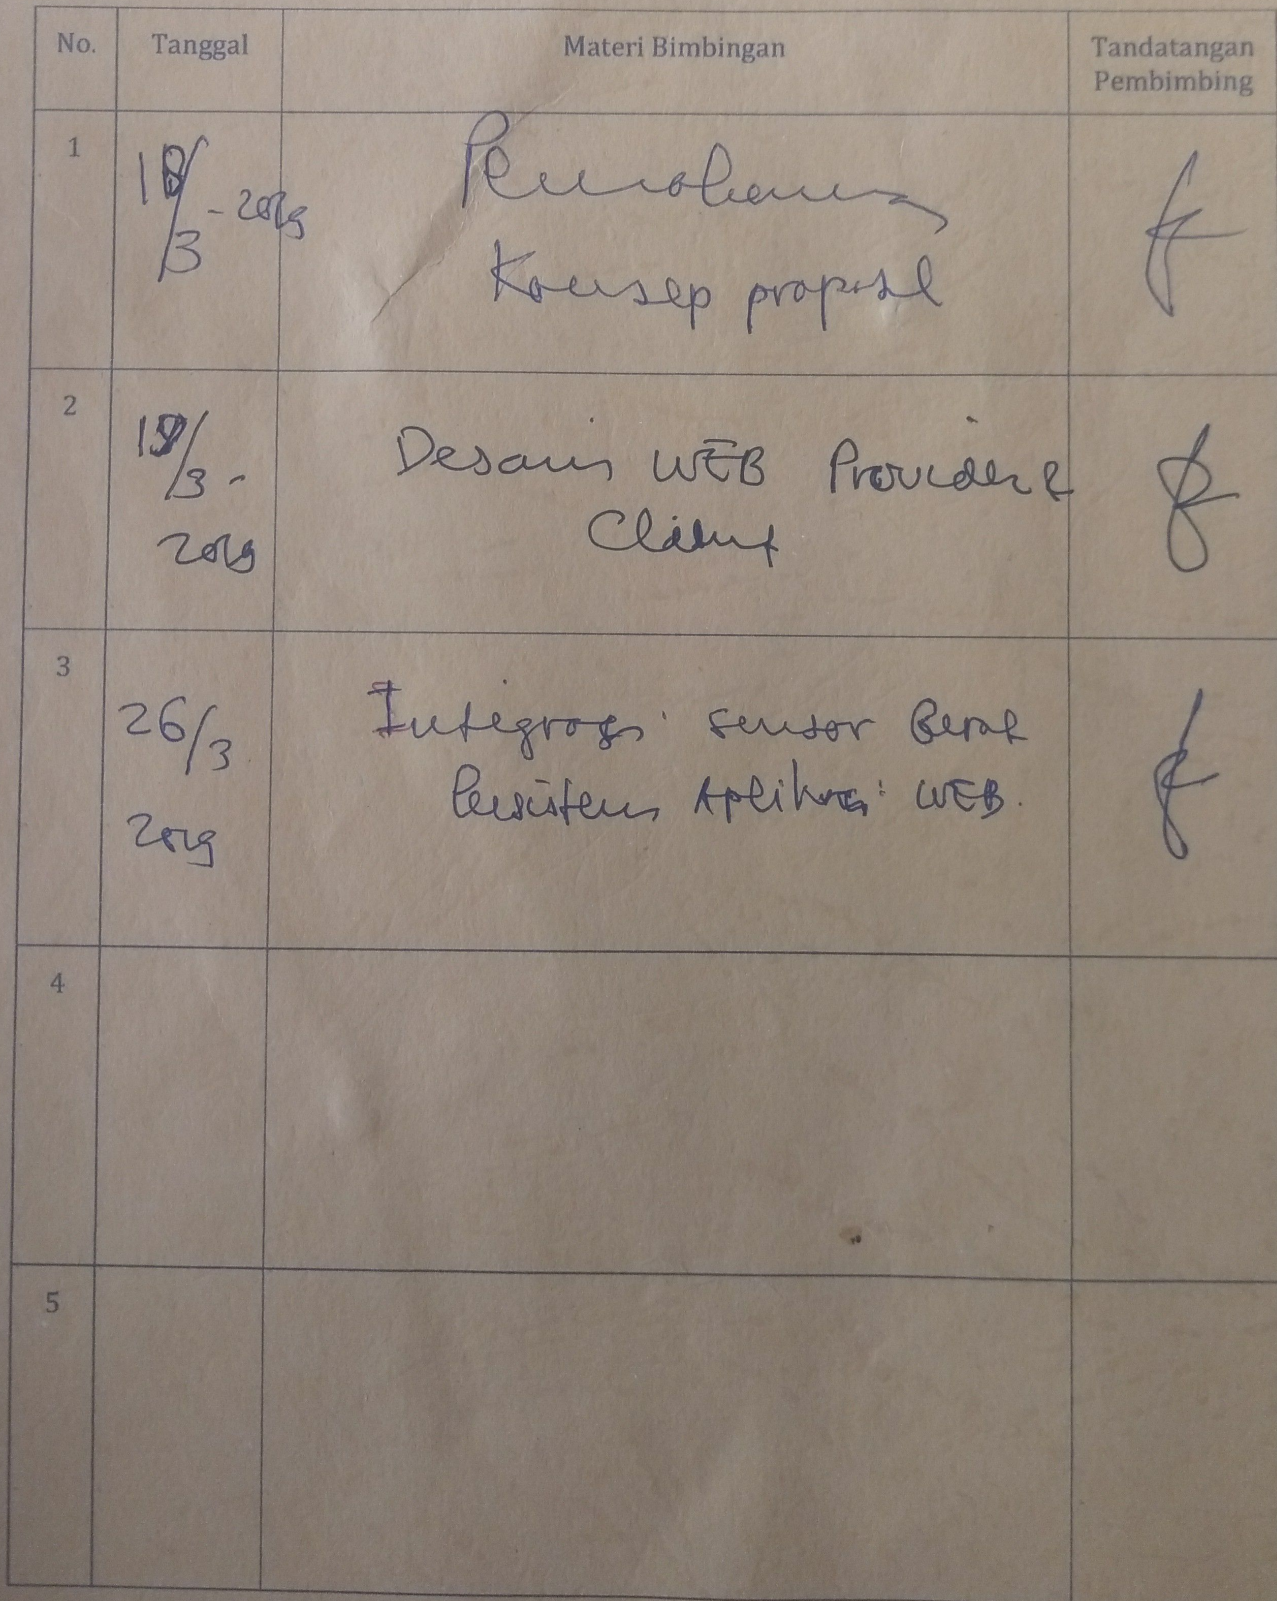 No. Tanggal Materi Bimbingan Tandatangan
Pembimbing
1
18/3 - 2019
Konsep proposal
2
/3 -
2019
Desain WEB Provider &
Client
3
26/3
2019
Integrasi sensor Berat
Aplikasi WEB.
4
5